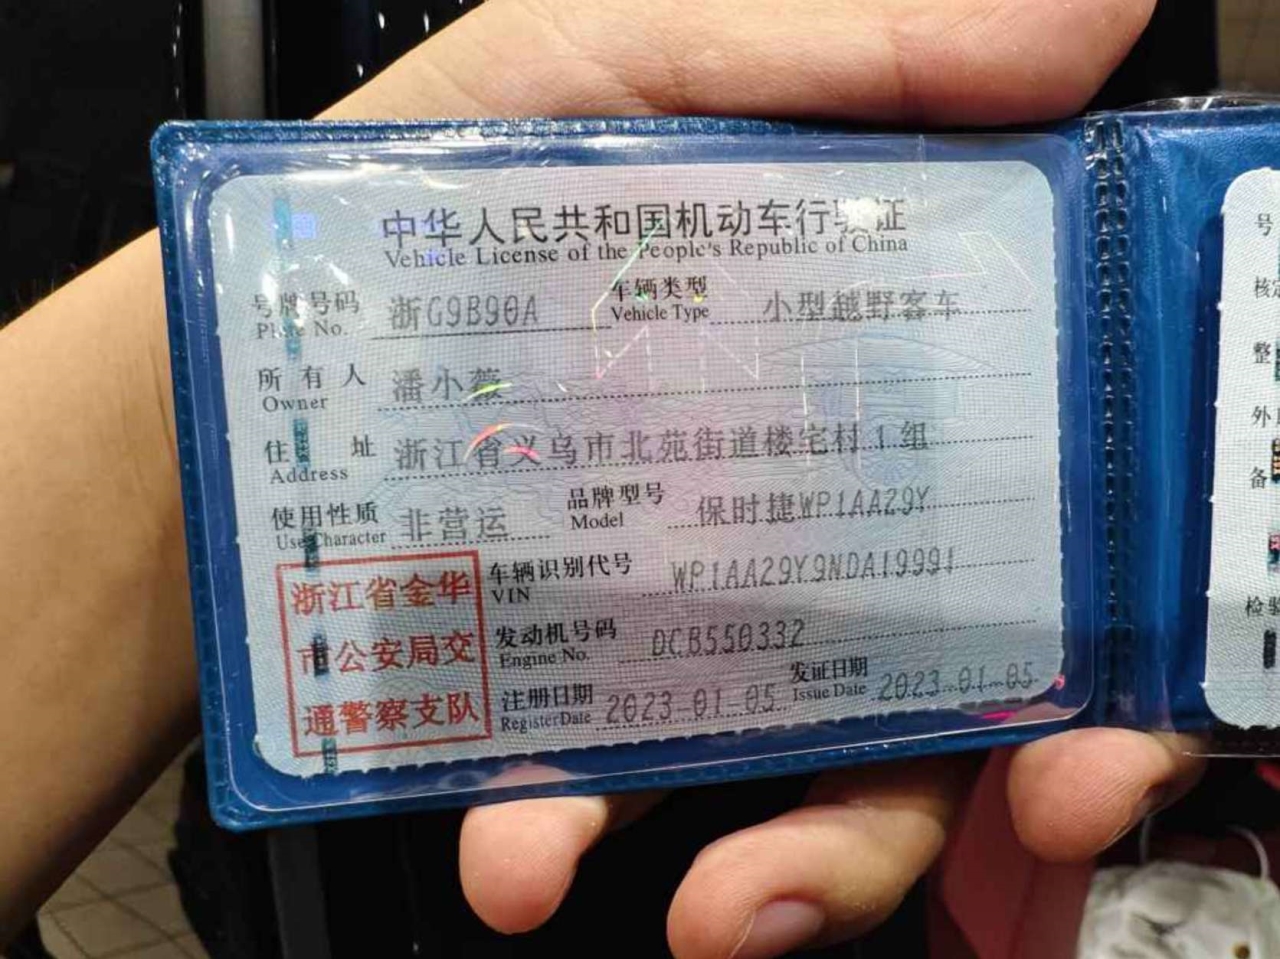 中华人民共和国机动车行驶证
Vehicle License of the People's Republic of China
号牌号码 浙G9B90A 车辆类型 小型越野客车
Plate No. Vehicle Type
所有人 潘小薇
Owner
住址 浙江省义乌市北苑街道楼宅村1组
Address
使用性质 非营运 品牌型号 保时捷WP1AA29Y
Use Character Model
浙江省金华
市公安局交
通警察支队
车辆识别代号 WP1AA29Y9NDA19991
VIN
发动机号码 DCB550332
Engine No.
注册日期 2023-01-05 发证日期 2023-01-05
Register Date Issue Date
号
核定
整
外
备
检验